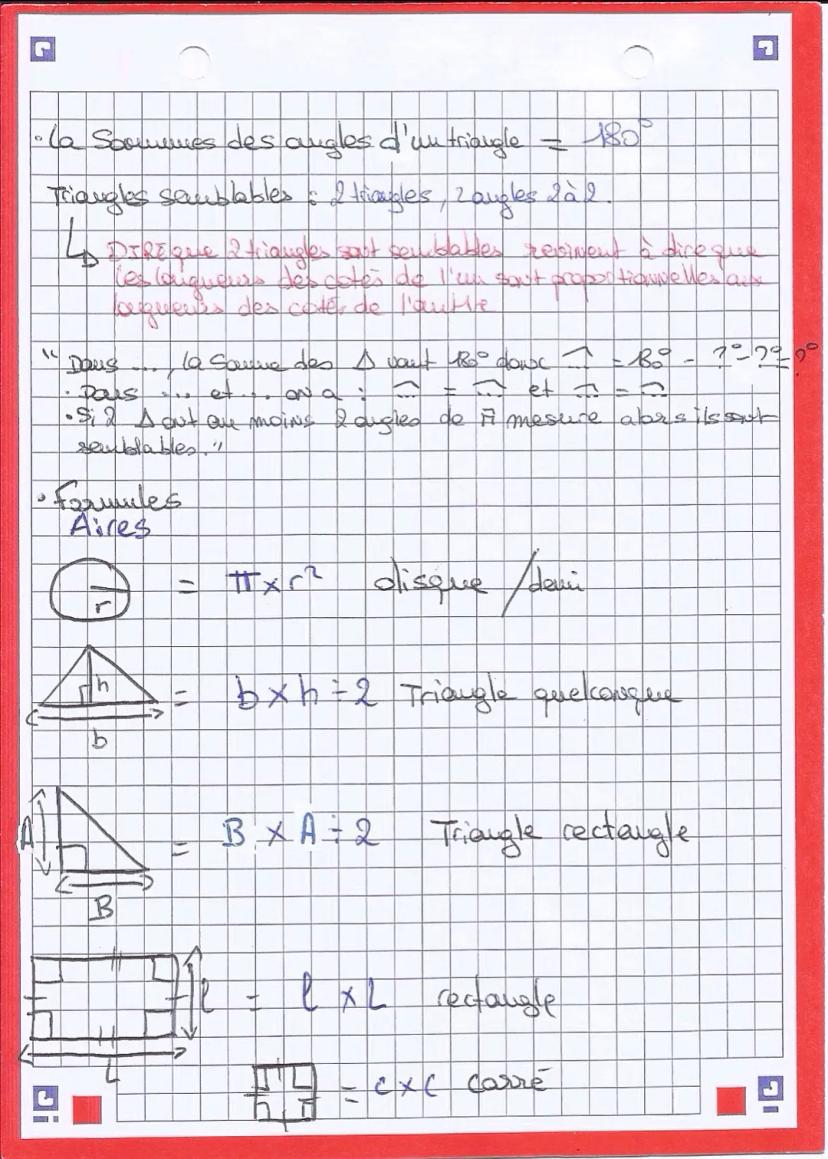 • La Sommes des angles d'un triangle = 180°
Triangles semblables : 2 triangles, 2 angles 2 à 2.
↳ DIRE que 2 triangles sont semblables revinent à dire que
les longueurs des cotés de l'un sont proportionnelles aux
longueurs des cotés de l'autre
" Dans ..., la somme des Δ vaut 180° donc ^ = 180° - ?° - ?° = ?°
• Dans ... et ... on a : ^ = ^ et ^ = ^
• Si 2 Δ ont au moins 2 angles de m̄ mesure alors ils sont
semblables."
• Formules
Aires
r = π x r² disque / demi
h = b x h ÷ 2 Triangle quelconque
b
A = B x A ÷ 2 Triangle rectangle
B
l = l x L rectangle
L
= c x c carré